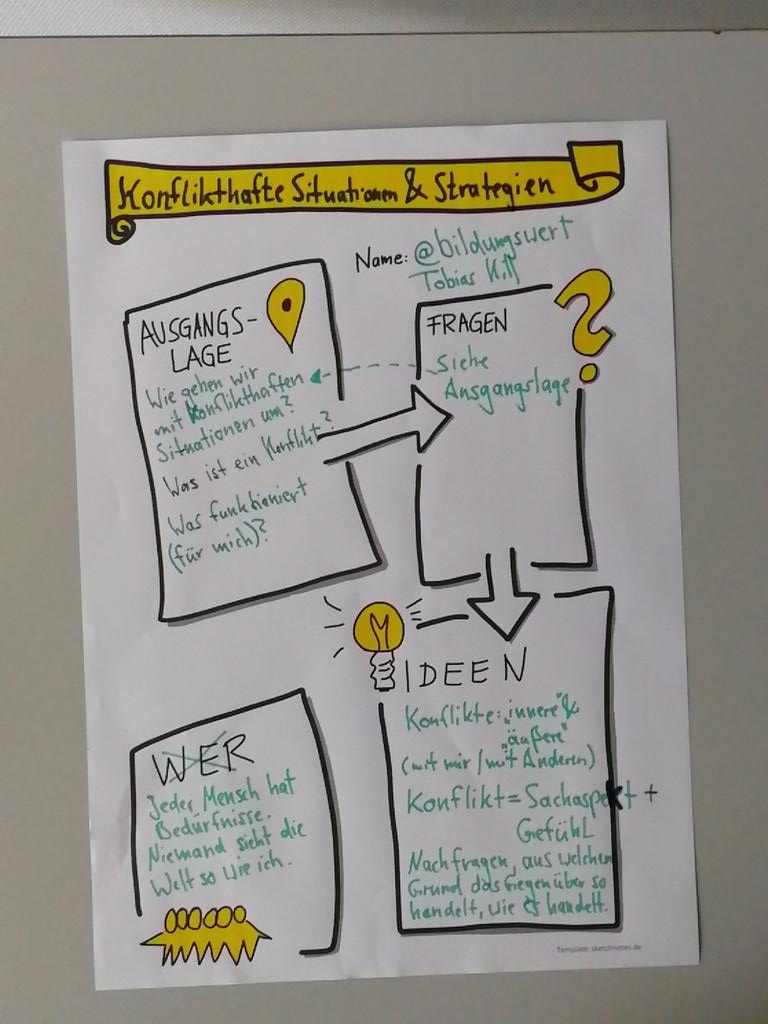 Konflikthafte Situationen & Strategien
Name: @bildungswert
Tobias Hill
AUSGANGS-
LAGE
Wie gehen wir
mit Konflikthaften
Situationen um?
Was ist ein Konflikt?
Was funktioniert
(für mich)?
FRAGEN
siehe
Ausgangslage
IDEEN
Konflikte: „innere" &
„äußere"
(mit mir / mit Anderen)
Konflikt = Sachaspekt +
Gefühl
Nachfragen, aus welchem
Grund das Gegenüber so
handelt, wie es handelt.
WER
Jeder Mensch hat
Bedürfnisse.
Niemand sieht die
Welt so wie ich.
Template: sketchnotes.de